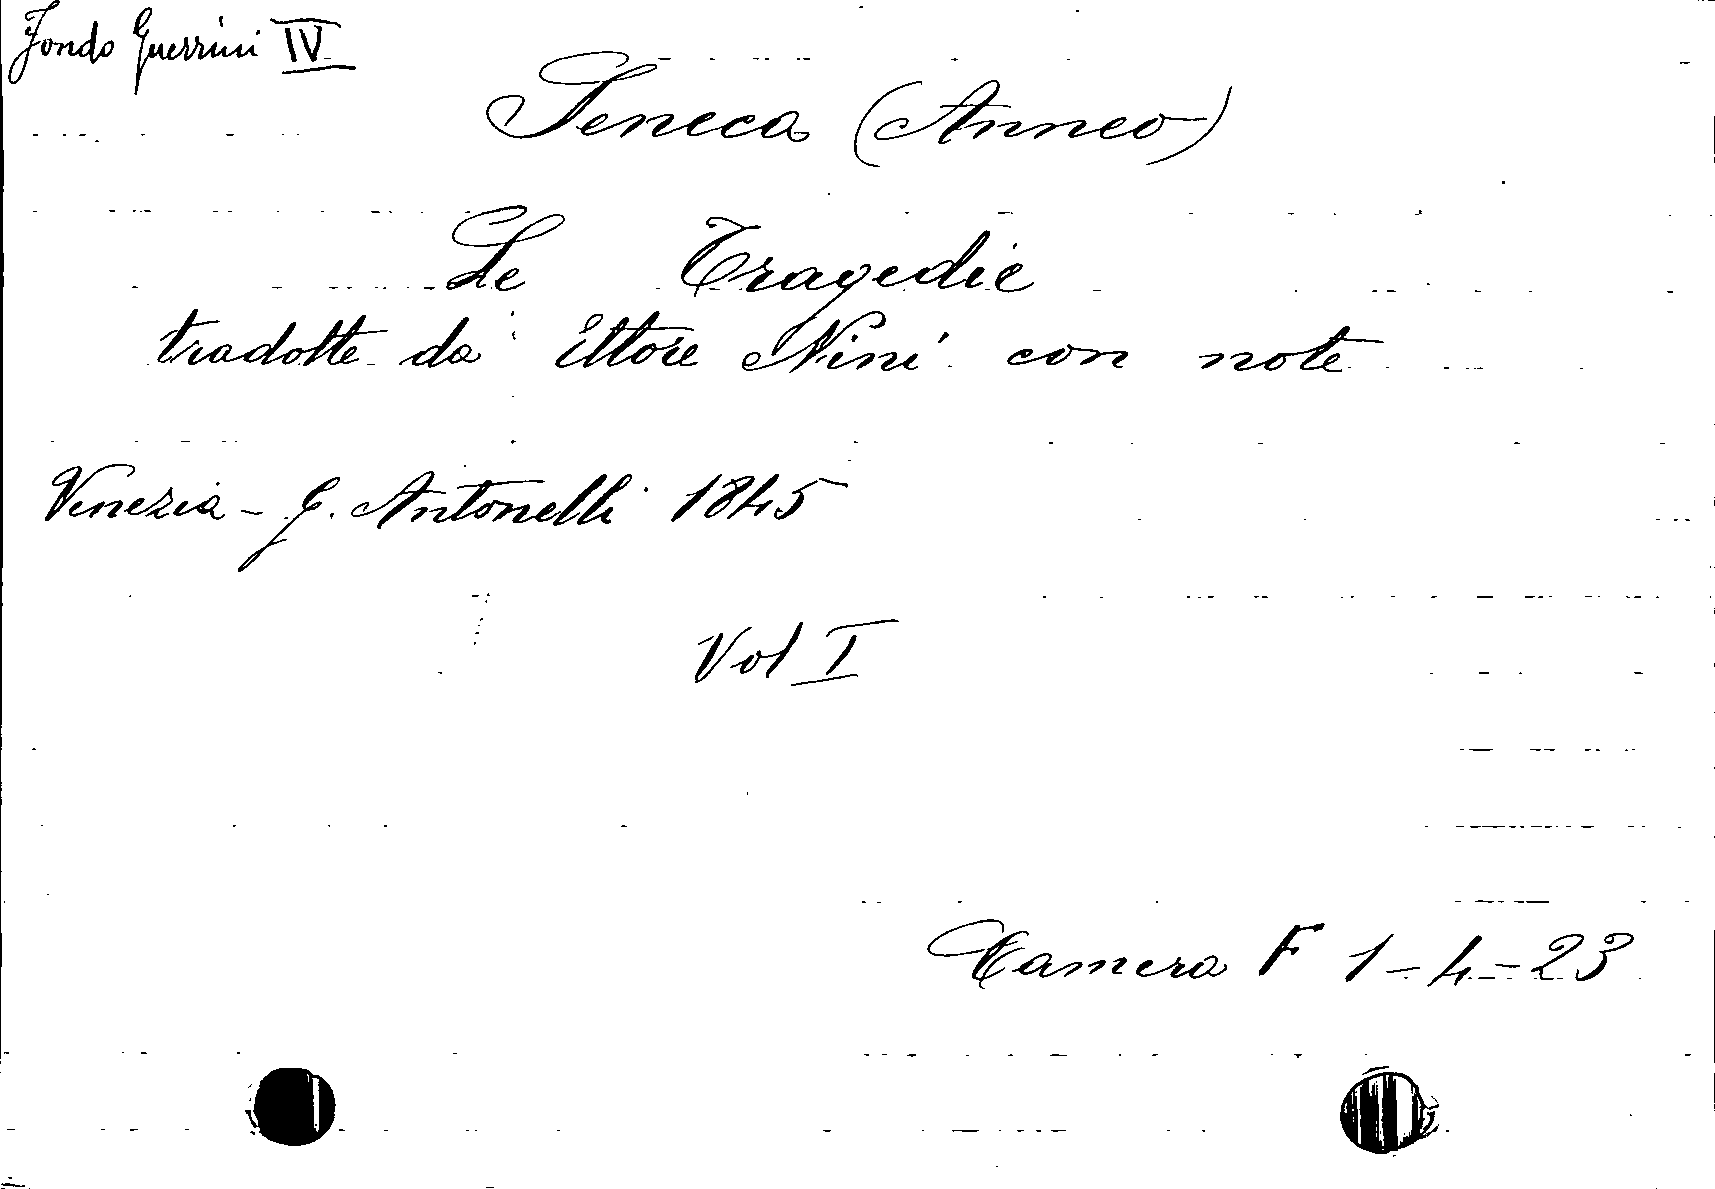 Fondo Guerrini IV
Seneca (Anneo)
Le Tragedie
tradotte da Ettore Nini con note
Venezia - G. Antonelli 1845
Vol I
Camera F 1-4-23